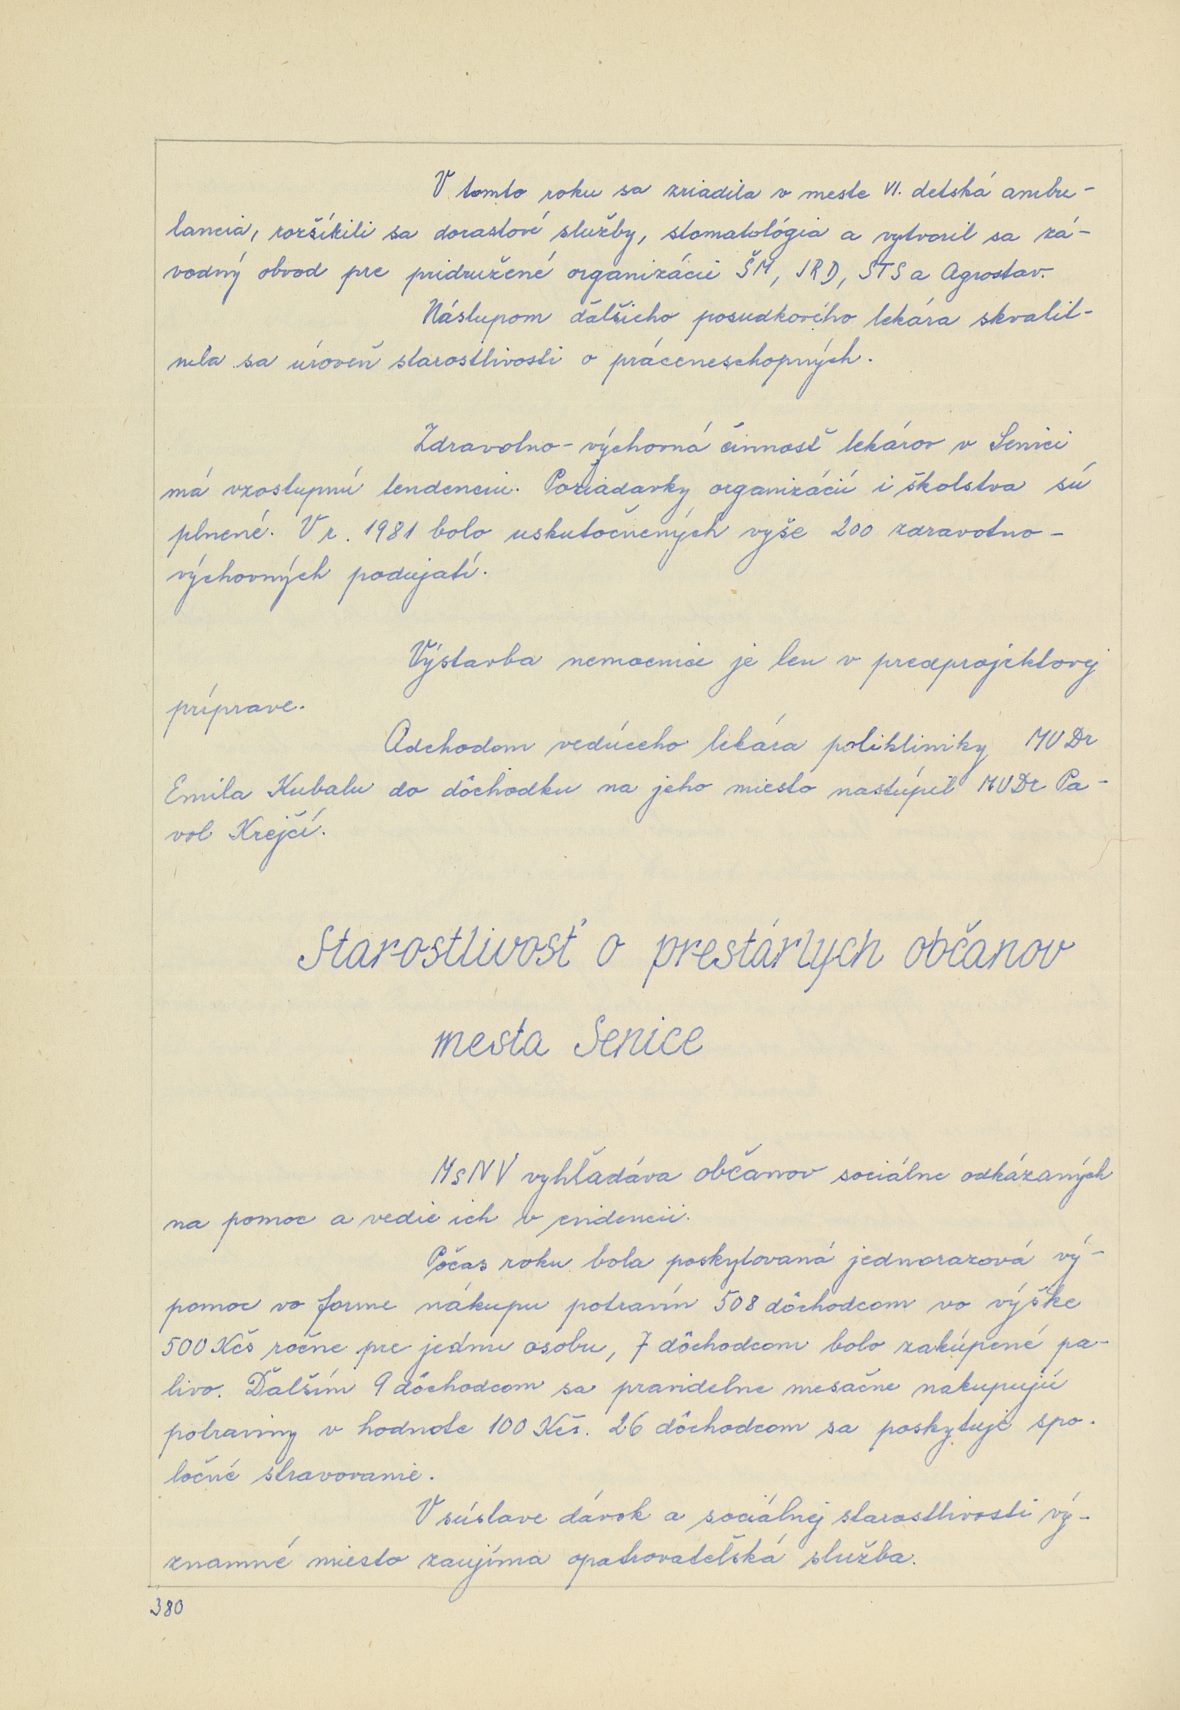 V tomto roku sa zriadila v meste VI. detská ambu-
lancia, rozšíkili sa dorastové služby, stomatológia a vytvoril sa zá-
vodný obvod pre pridružené organizácii ŠM, JRD, STS a Agrostav.
Nástupom ďalšieho posudkového lekára skvalit-
nila sa úroveň starostlivosti o práceneschopných.
Zdravotno-výchovná činnosť lekárov v Senici
má vzostupnú tendenciu. Požiadavky organizácií i školstva sú
plnené. V r. 1981 bolo uskutočnených vyše 200 zdravotno-
výchovných podujatí.
Výstavba nemocnice je len v predprojektovej
príprave.
Odchodom vedúceho lekára polikliniky MUDr
Emila Kubalu do dôchodku na jeho miesto nastúpil MUDr Pa-
vol Krejčí.
Starostlivosť o prestárlych občanov
mesta Senice
MsNV vyhľadáva občanov sociálne odkázaných
na pomoc a vedie ich v evidencii.
Počas roku bola poskytovaná jednorazová vý-
pomoc vo forme nákupu potravín 508 dôchodcom vo výške
500 Kčs ročne pre jednu osobu, 7 dôchodcom bolo zakúpené pa-
livo. Ďalším 9 dôchodcom sa pravidelne mesačne nakupujú
potraviny v hodnote 100 Kčs. 26 dôchodcom sa poskytuje spo-
ločné stravovanie.
V sústave dávok a sociálnej starostlivosti vý-
znamné miesto zaujíma opatrovateľská služba.
380